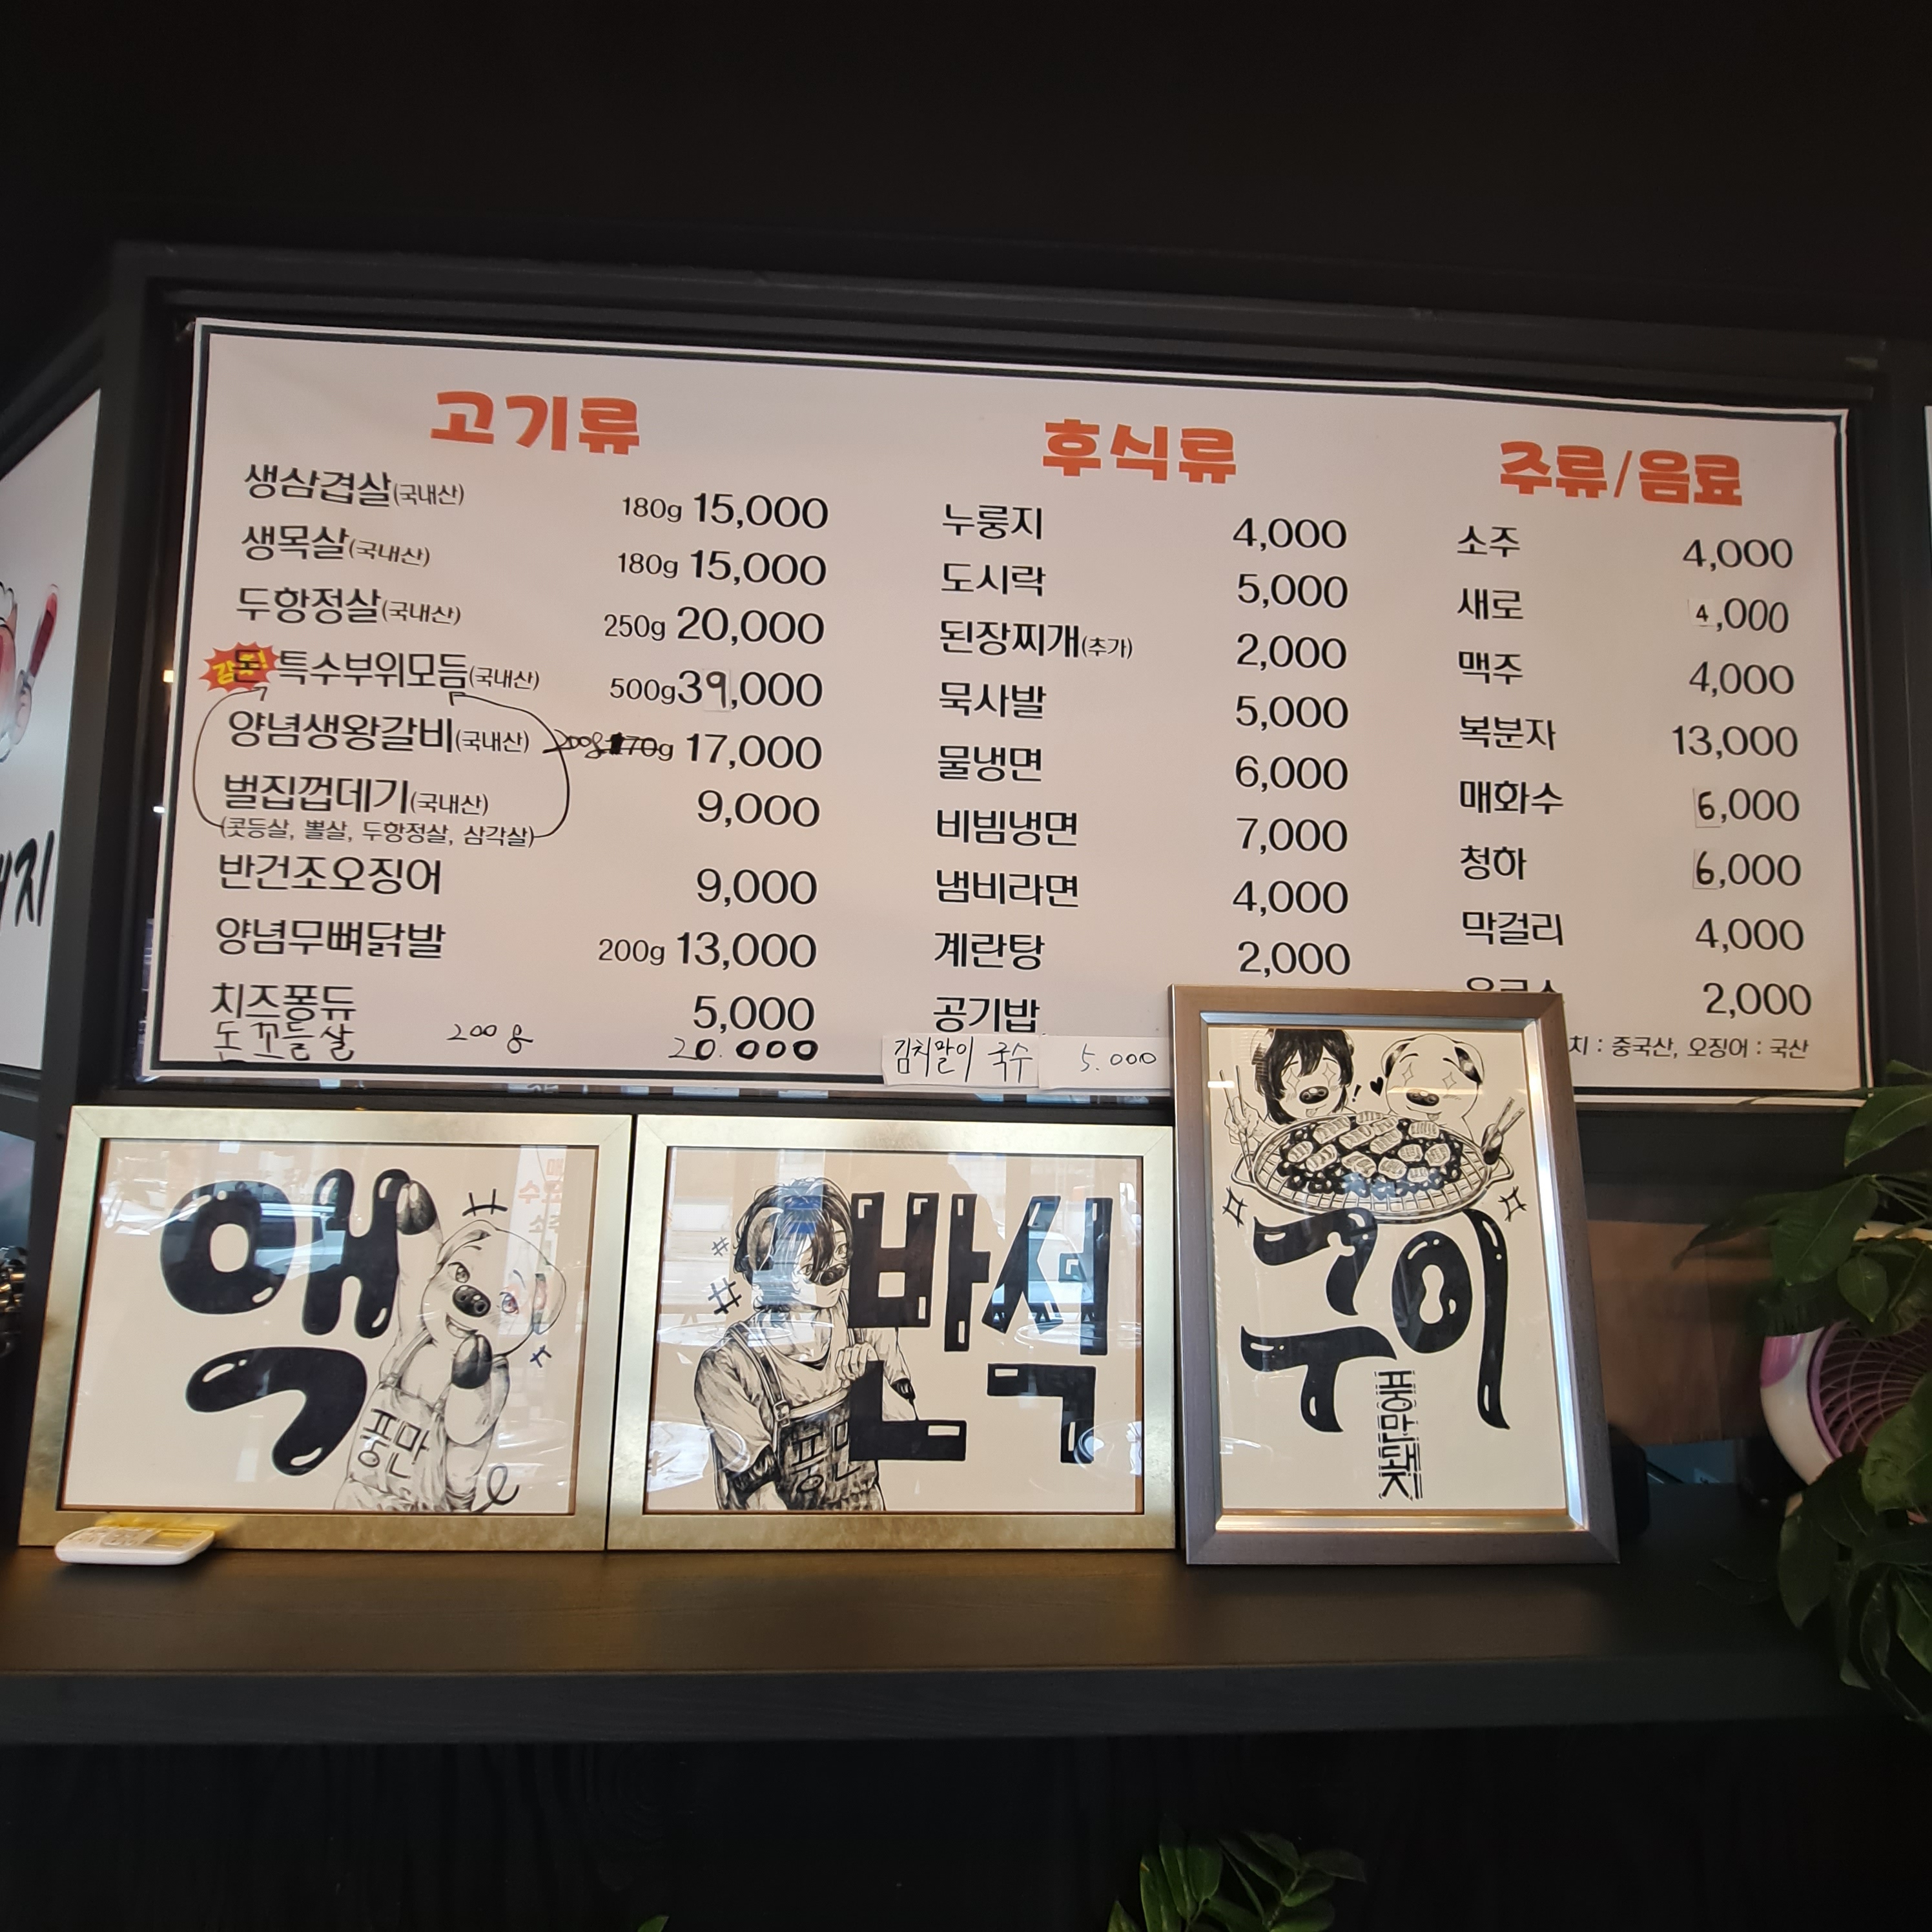 고기류
생삼겹살(국내산) 180g 15,000
생목살(국내산) 180g 15,000
두항정살(국내산) 250g 20,000
돈 특수부위모듬(국내산) 500g 39,000
양념생왕갈비(국내산) 200g 170g 17,000
벌집껍데기(국내산) 9,000
(콧등살, 뽈살, 두항정살, 삼각살)
반건조오징어 9,000
양념무뼈닭발 200g 13,000
치즈퐁듀 5,000
돈꼬들살 200g 20.000
후식류
누룽지 4,000
도시락 5,000
된장찌개(추가) 2,000
묵사발 5,000
물냉면 6,000
비빔냉면 7,000
냄비라면 4,000
계란탕 2,000
공기밥
김치말이 국수 5.000
주류/음료
소주 4,000
새로 4,000
맥주 4,000
복분자 13,000
매화수 6,000
청하 6,000
막걸리 4,000
2,000
치 : 중국산, 오징어 : 국산
지
풍만
반석
풍만
구이
풍만돼지